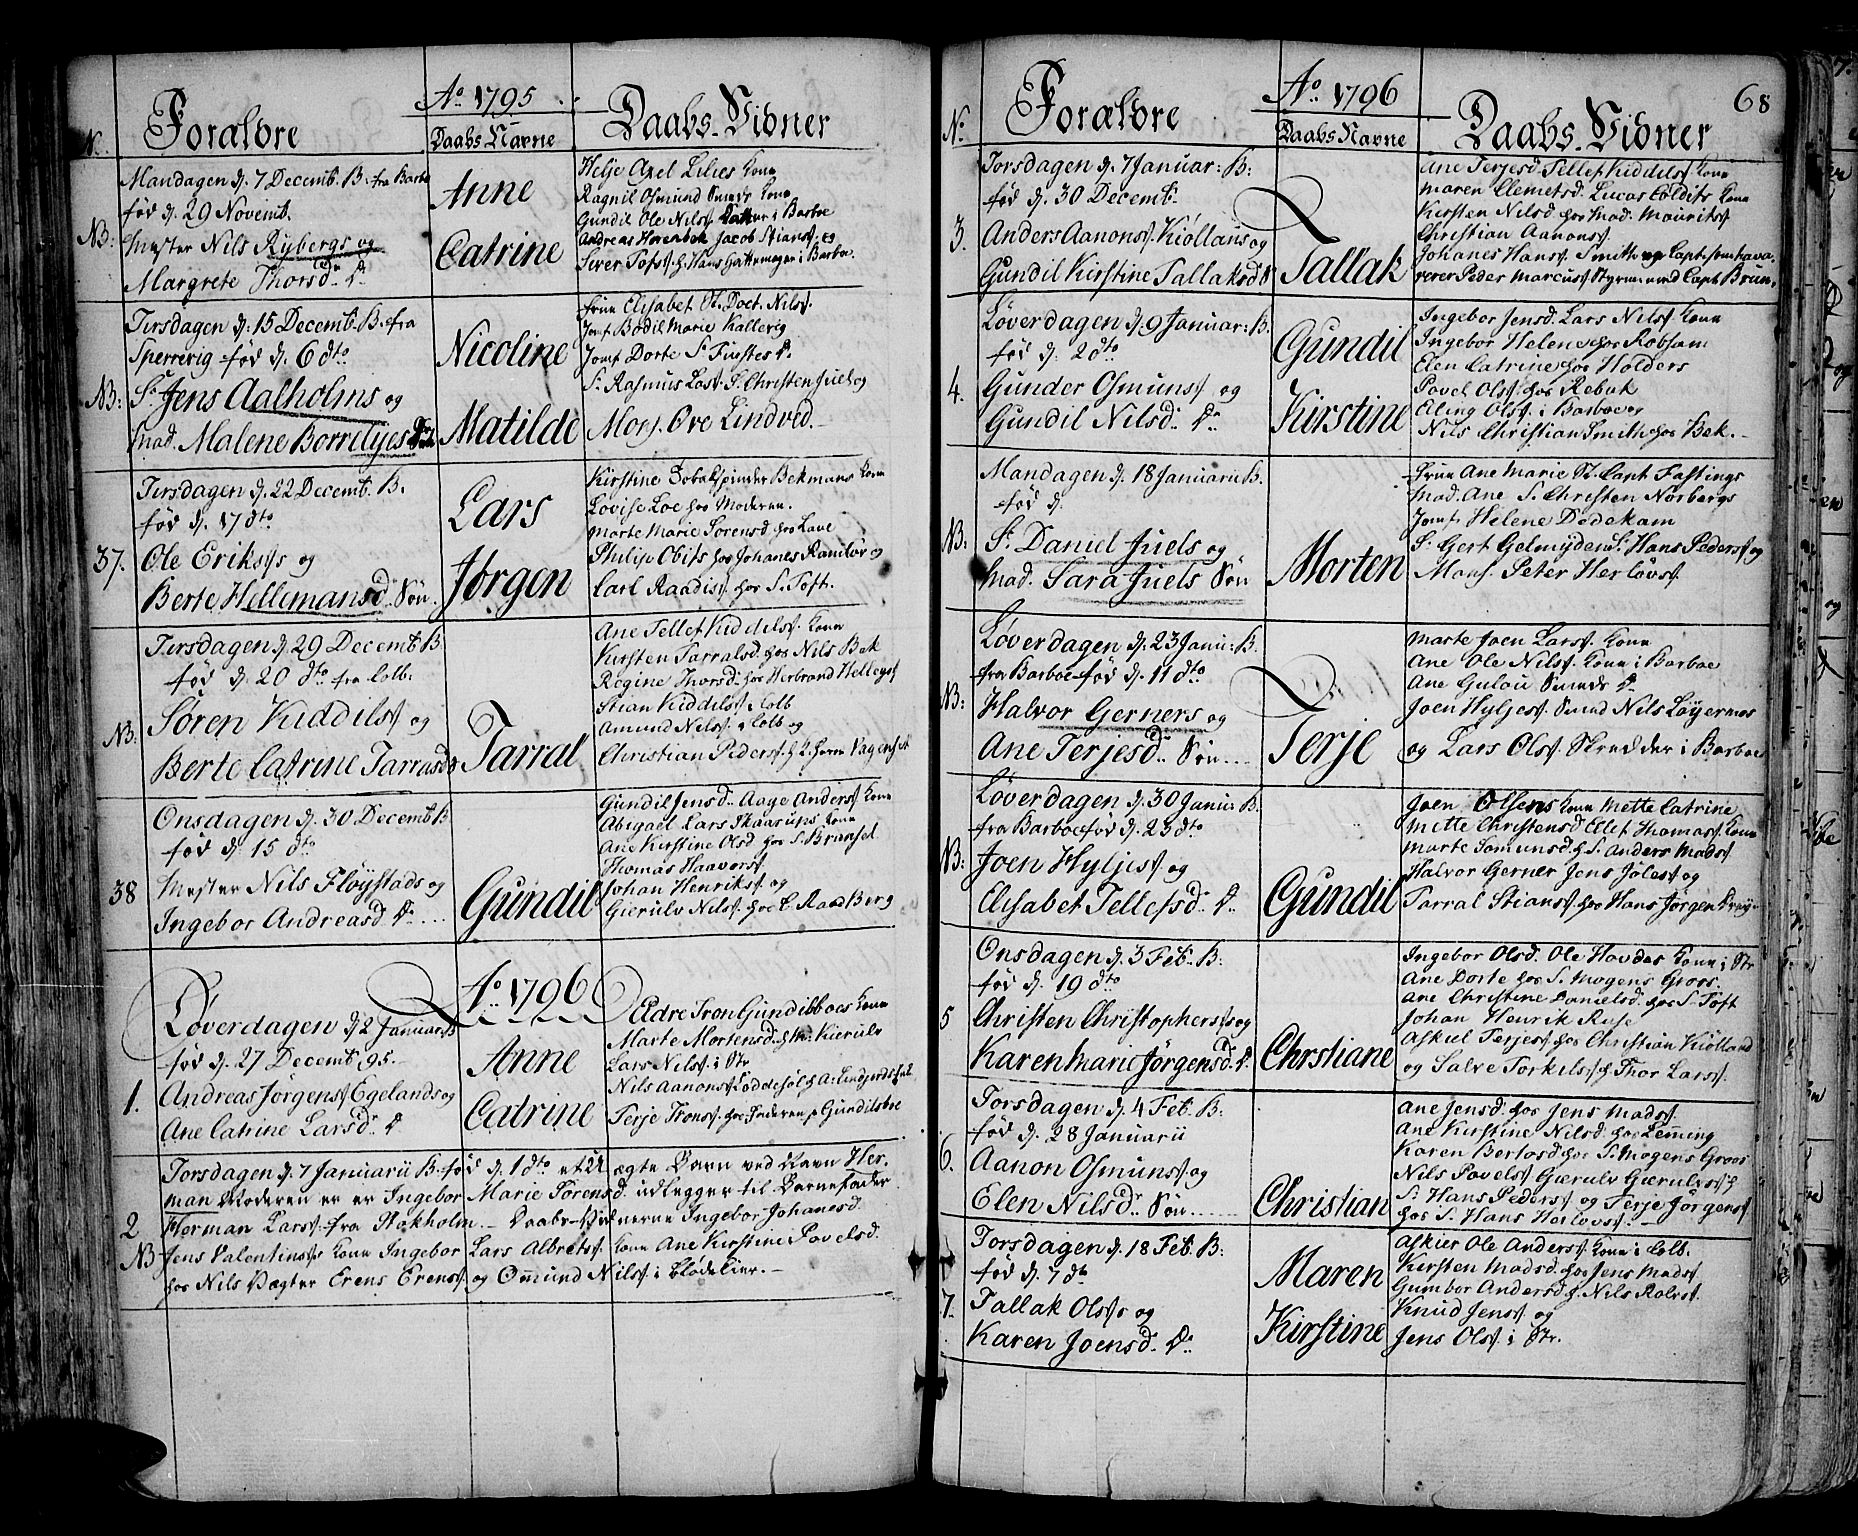 Aº 1795
No. Forældre Daabs Navne Daabs-Vidner
Mandagen d. 7 Decemb. B. fra Barboe
fød d. 29 Novemb.
NB: Mester Nils Rybergs og
Margrete Thorsdr. Dr.
Anne
Catrine
Helje Axel Lilies Kone
Ragnil Osmund Smeds Kone
Gundil Ole Nilss. Datter i Barboe
Andreas Horenbek Jacob Stianss. og
Siver Tofss. h. Hans Hattemager i Barboe.
Tirsdagen d. 15 Decemb. B. fra
Sperrevig fød d. 6 dto
NB: Sr. Jens Aalholms og
Mad. Malene Borrelyes
Nicoline
Matilde
Frue Elisabet St. Doct. Nilss.
Jomf. Bodil Marie Kallevig
Jomf. Dorte Sr. Fürstes Dr.
Sr. Rasmus Lass. S. Christen Juel og
Mons. Ove Lindved.
Tirsdagen d. 22 Decemb. B.
fød d. 17 dto
37. Ole Erikss. og
Berte Hellemansdr. Søn.
Lars
Jørgen
Kirstine Tobakspinder Bekmans Kone
Lovise Loe hos Moderen.
Marte Marie Sørensd. hos Lave
Philip Obits hos Johanes Ramlov og
Carl Raadiss. hos S. Toft.
Tirsdagen d. 29 Decemb. B
fød d. 20 dto fra Colb.
NB: Søren Kiddilss. og
Berte Catrine Tarralsdr
Tarral
Ane Tellef Kiddilss. Kone
Kirsten Tarralsd. hos Nils Bek
Regine Thorsd. hos Herbrand Hellegss
Stian Kiddilss. i Colb
Amund Nilss. i Colb og
Christian Pederss.
Onsdagen d. 30 Decemb. B
fød d. 15 dto
38 Mester Nils Fløystads og
Ingebor Andreasd. Dr.
Gundil
Gundil Jensd. Aage Anderss. Kone
Abigael Lars Skaarups Kone
Ane Kirstine Olsd. hos S. Bransel
Thomas Haavorss.
Johan Henrikss. og
Gierulv Nilss. hos C. Raad Berg
Aº 1796
Løverdagen d. 2 Januarii
fød d. 27 Decemb. 95.
1. Andreas Jørgenss. Egelands og
Ane Catrine Larsdr. Dr.
Anne
Catrine
Eldre Tron Gundisboes Kone
Marte Mortensd. Kierulv
Lars Nilss. i Str
Nils Aanonss. Løddesøl
Terje Tronss. hos Faderen p. Gundilsboe
Torsdagen d. 7 Januarii B. fød d. 1 dto et uægte Barn ved Navn Her-
man Moderen er er Ingebor Marie Torensd. udlegger til Barnefader
2 Herman Larss. fra Stokholm. Daabs-Vidnerne Ingebor Johanesd.
NB Jens Valentinss. Kone Ingebor Lars Albretss. Kone Ane Kirstine Povelsd.
hos Nils Vægter Erens Erenss. og Omund Nilss. i Blødekier.
Aº 1796 68
No. Forældre Daabs Navne Daabs-Vidner
Torsdagen d. 7 Januar: B:
fød d. 30 Decemb.
3. Anders Aanonss. Kiøllans og
Gundil Kirstine Tallaksdr
Tallak
Ane Terjesd. Tellef Kiddilss. Kone
Maren Clemetsd. Lucas Coldits Kone
Kirsten Nilsd. hos Mad. Mauritss
Christian Aanonss.
Johanes Hanss. Smith og Capt. som hava
rerer Peder Marcuss. Styrm. med Capt. Brun.
Løverdagen d. 9 Januar: B.
fød d. 2 dto
4. Gunder Osmunss. og
Gundil Nilsd. Dr.
Gundil
Kirstine
Ingebor Jensd. Lars Nilss. Kone
Ingebor Helene hos Robsam
Elen Catrine hos Holders
Povel Olss. hos Rebak
Eling Olss. i Barboe og
Nils Christian Smith hos Bek.
Mandagen d. 18 Januarii B.
fød d.
NB: Sr. Daniel Juels og
Mad. Sara Juels Søn
Morten
Frue Ane Marie St. Capt. Fastings
Mad. Ane S. Christen Norbergs
Jomf. Helene Dedekam
S. Gert Gelmyden Sr. Hans Pederss. og
Mons. Peter Herlovss.
Løverdagen d. 23 Janu: B.
fra Barboe fød d. 11 dto
NB: Halvor Gerners og
Ane Terjesd. Søn
Terje
Marte Joen Larss. Kone
Ane Ole Nilss. Kone i Barboe
Ane Gulou Smeds Dr.
Joen Hyljess. Smed Nils Løgernes
og Lars Olss. Skredder i Barboe
Løverdagen d. 30 Janu: B.
fra Barboe fød d. 23 dto
NB: Joen Hyljess. og
Elisabet Tellefsd. Dr.
Gundil
Joen Olsens Kone Mette Catrine
Mette Christensd. Ellef Thomass. Kone
Marte Tomunsd. h. S. Anders Madss.
Halvor Gerner Jens Joless. og
Tarral Stianss. hos Hans Jørgen
Onsdagen d. 3 Feb. B:
fød d. 19 dto
5 Christen Christopherss. og
Karen Marie Jørgensdr. Dr.
Chrstiane
Ingebor Olsd. Ole Hovdes Kone i Str
Ane Dorte hos S. Mogens Groos.
Ane Christine Danielsd. hos S. Toft
Johan Henrik Ruse
Askiel Terjess. hos Christian Kiølland
og Salve Torkilss. h. Thor Larss.
Torsdagen d. 4 Feb. B:
fød d. 28 Januarii
6. Aanon Osmunss. og
Elen Nilsdr. Søn
Christian
Ane Jensd. hos Jens Madss.
Ane Kirstine Nilsd. hos Lemming
Karen Bertosd. hos S. Mogens Groos
Nils Povelss. Gierulv Gierulvss. h
Sr. Hans Pederss. og Terje Jørgenss.
hos S. Hans Herlovss.
Torsdagen d. 18 Feb. B:
fød d. 7 dto
7. Tallak Olss. og
Karen Joensd. Dr.
Maren
Kirstine
Askier Ole Anderss. Kone i Colb.
Kirsten Madsd. hos Jens Madss.
Gumbor Andersd. h. Nils Rolvss.
Knud Jenss. og
Jens Olss. i Str.